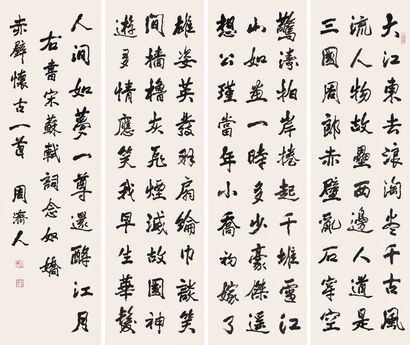 大江東去浪淘尽千古風
流人物故壘西邊人道是
三國周郎赤壁亂石穿空
驚濤拍岸捲起千堆雪江
山如畫一時多少豪傑遥
想公瑾當年小喬初嫁了
雄姿英發羽扇綸巾談笑
间檣櫓灰飛煙滅故國神
遊多情應笑我早生華髮
人间如夢一尊還酹江月
右書宋蘇軾詞念奴嬌
赤壁懷古一首 周濟人